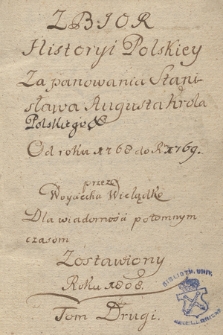 ZBIOR
Historyi Polskiey
Za panowania Stani-
sława Augusta Króla
Polskiego &
Od roku 1768 do R. 1769.
przez
Woyciecha Wielądko
Dla wiadomości potomnym
czasom
Zostawiony
Roku 1808.
Tom Drugi.